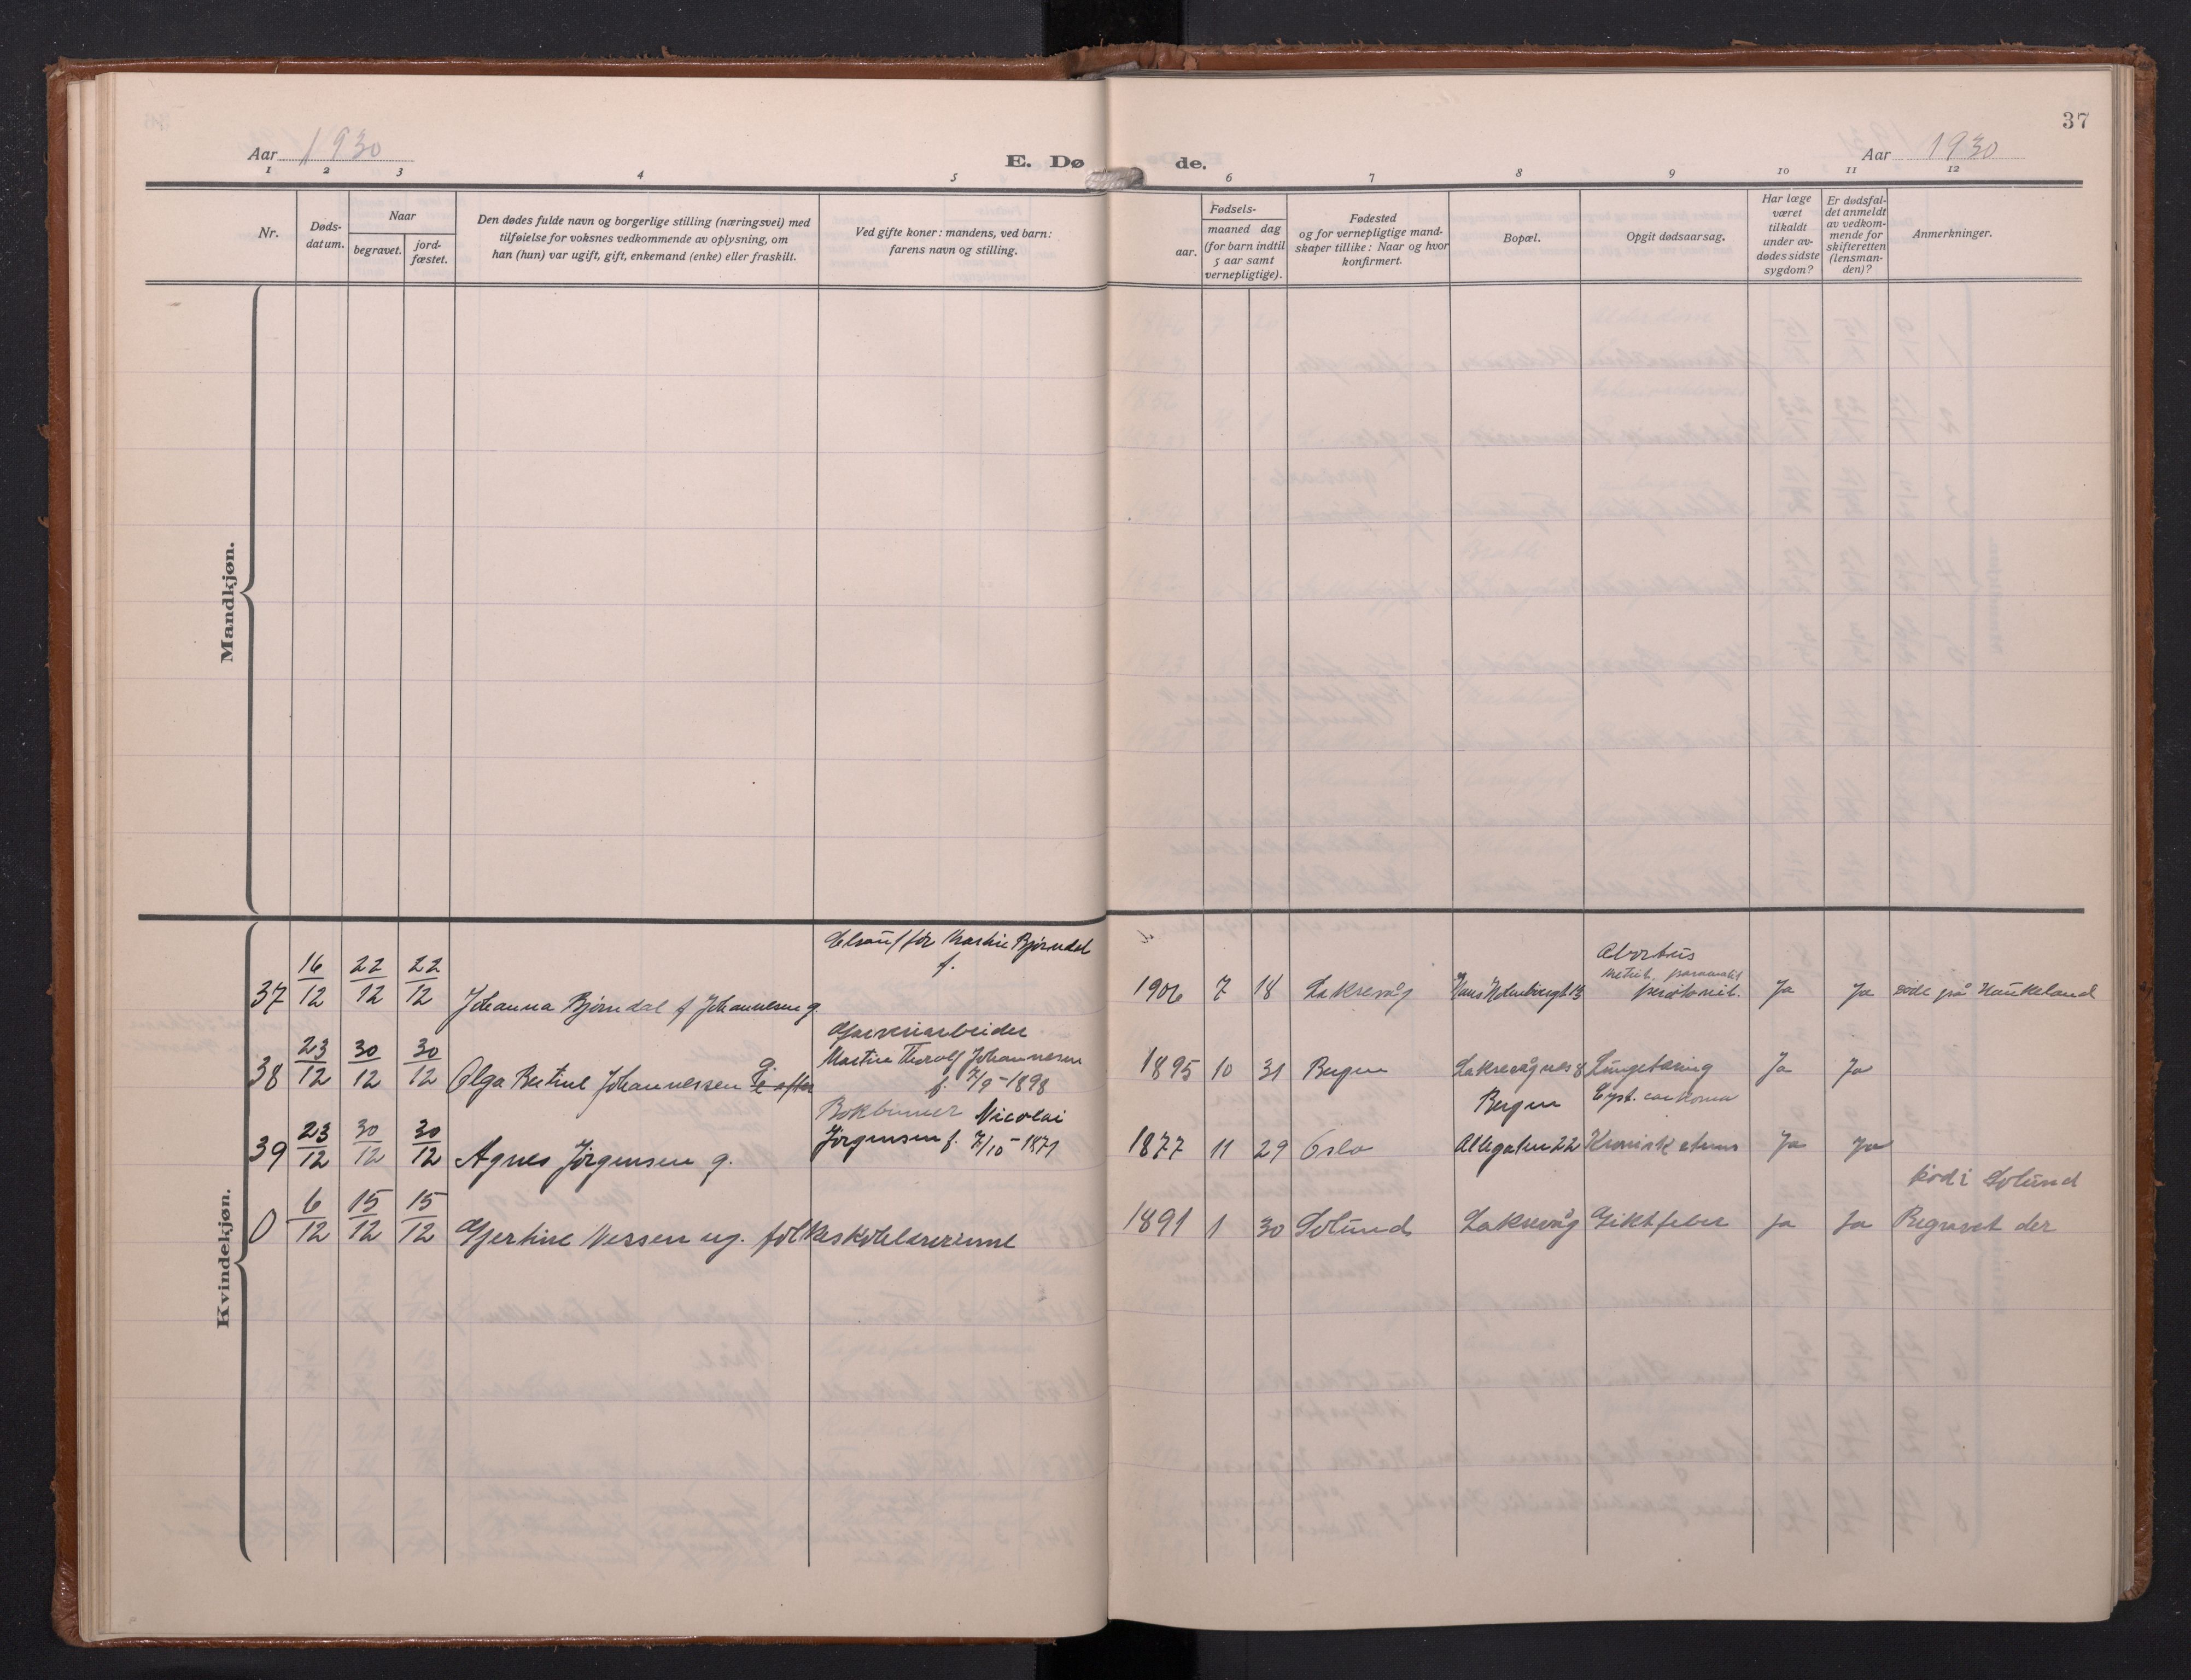 37
Aar 1930
E. Dø
de.
Aar 1930
1 2 3 4 5 6 7 8 9 10 11 12
Nr.
Døds-
datum.
Naar
begravet.
jord-
fæstet.
Den dødes fulde navn og borgerlige stilling (næringsvei) med
tilføielse for voksnes vedkommende av oplysning, om
han (hun) var ugift, gift, enkemand (enke) eller fraskilt.
Ved gifte koner: mandens, ved barn:
farens navn og stilling.
Fødsels-
aar.
maaned dag
(for barn indtil
5 aar samt
vernepligtige).
Fødested
og for vernepligtige mand-
skaper tillike: Naar og hvor
konfirmert.
Bopæl.
Opgit dødsaarsag.
Har læge
været
tilkaldt
under av-
dødes sidste
sygdom?
Er dødsfal-
det anmeldt
av vedkom-
mende for
skifteretten
(lensman-
den)?
Anmerkninger.
Mandkjøn.
Kvindekjøn.
37 16/12 22/12 22/12 Johanna Bjørndal f Johannesen g.
Martin Bjørndal
f.
1906 7 18 Laksevåg
Abortus
Ja Ja døde på Haukeland
38 23/12 30/12 30/12 Olga Bertine Johannessen g. e after
Garveriarbeider
Martin Thorolf Johannesen
f. 7/9-1898
1895 10 31 Bergen Laksevågnes 8 Lungetæring Ja Ja
39 23/12 30/12 30/12 Agnes Jörgensen g.
Bokbinner Nicolai
Jörgensen f. 7/10-1871
1877 11 29 Oslo
Bergen
Allegaten 22
Cyst. carkoma
Kronisk Ja Ja
0 6/12 15/12 15/12 Gjertine Nessen ug. folkeskolelærerinne
1891 1 30 Solund Laksevåg Giktfeber Ja Ja
död i Solund
Begravet der